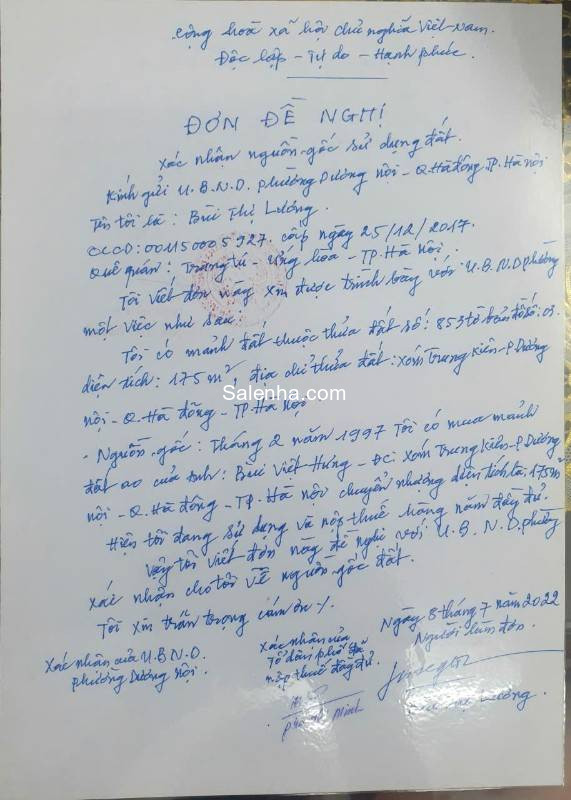 Cộng hoà xã hội chủ nghĩa Việt Nam.
Độc lập - Tự do - Hạnh phúc.
ĐƠN ĐỀ NGHỊ
Xác nhận nguồn gốc sử dụng đất.
Kính gửi U.B.N.D. phường Dương Nội - Q. Hà đông. TP. Hà nội
Tên tôi là: Bùi Thị Lương.
CCCD: 001150005927. cấp ngày 25/12/2017.
Quê quán: Trung tú - Ứng hòa - TP. Hà Nội.
Tôi viết đơn này xin được trình bày với U.B.N.D phường
một việc như sau
Tôi có mảnh đất thuộc thửa đất số: 853 tờ bản đồ số: 03.
diện tích: 175 m², địa chỉ thửa đất: xóm Trung Kiên - P Dương
Salenha.com
nội - Q. Hà đông - TP. Hà Nội
- Nguồn gốc: Tháng 2 năm 1997 Tôi có mua mảnh
đất ao của anh: Bùi Viết Hưng - ĐC: Xóm Trung Kiên - P Dương
nội - Q. Hà đông - TP. Hà nội chuyển nhượng diện tích là: 175m
Hiện tôi đang sử dụng và nộp thuế hàng năm đầy đủ.
Vậy tôi viết đơn này đề nghị với U.B.N.D. phường
xác nhận cho tôi về nguồn gốc đất.
Tôi xin trân trọng cám ơn ./.
Ngày 8 tháng 7 năm 2022
Người làm đơn.
Xác nhận của
Tổ dân phố đã
nộp thuế đầy đủ
Xác nhận của U.B.N.D.
phường Dương Nội.
Minh
Lương.